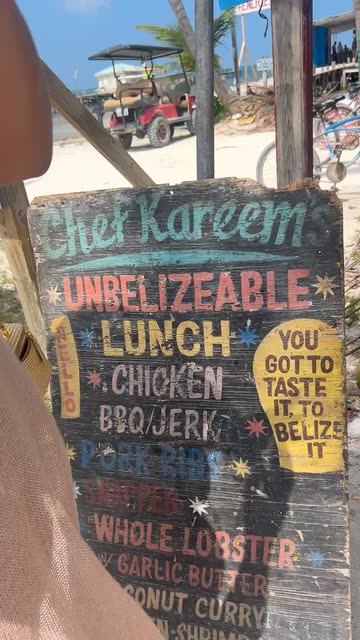 Chef Kareem's
UNBELIZEABLE
HELLO
LUNCH
CHICKEN
BBQ/JERK
PORK RIBS
SNAPPER
WHOLE LOBSTER
W/ GARLIC BUTTER
CONUT CURRY
YOU
GOT TO
TASTE
IT, TO
BELIZE
IT